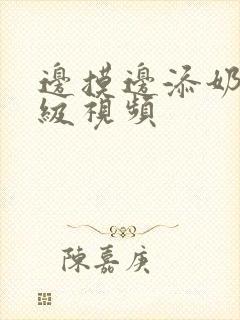 邊摸邊添奶
級視頻
陳嘉庚